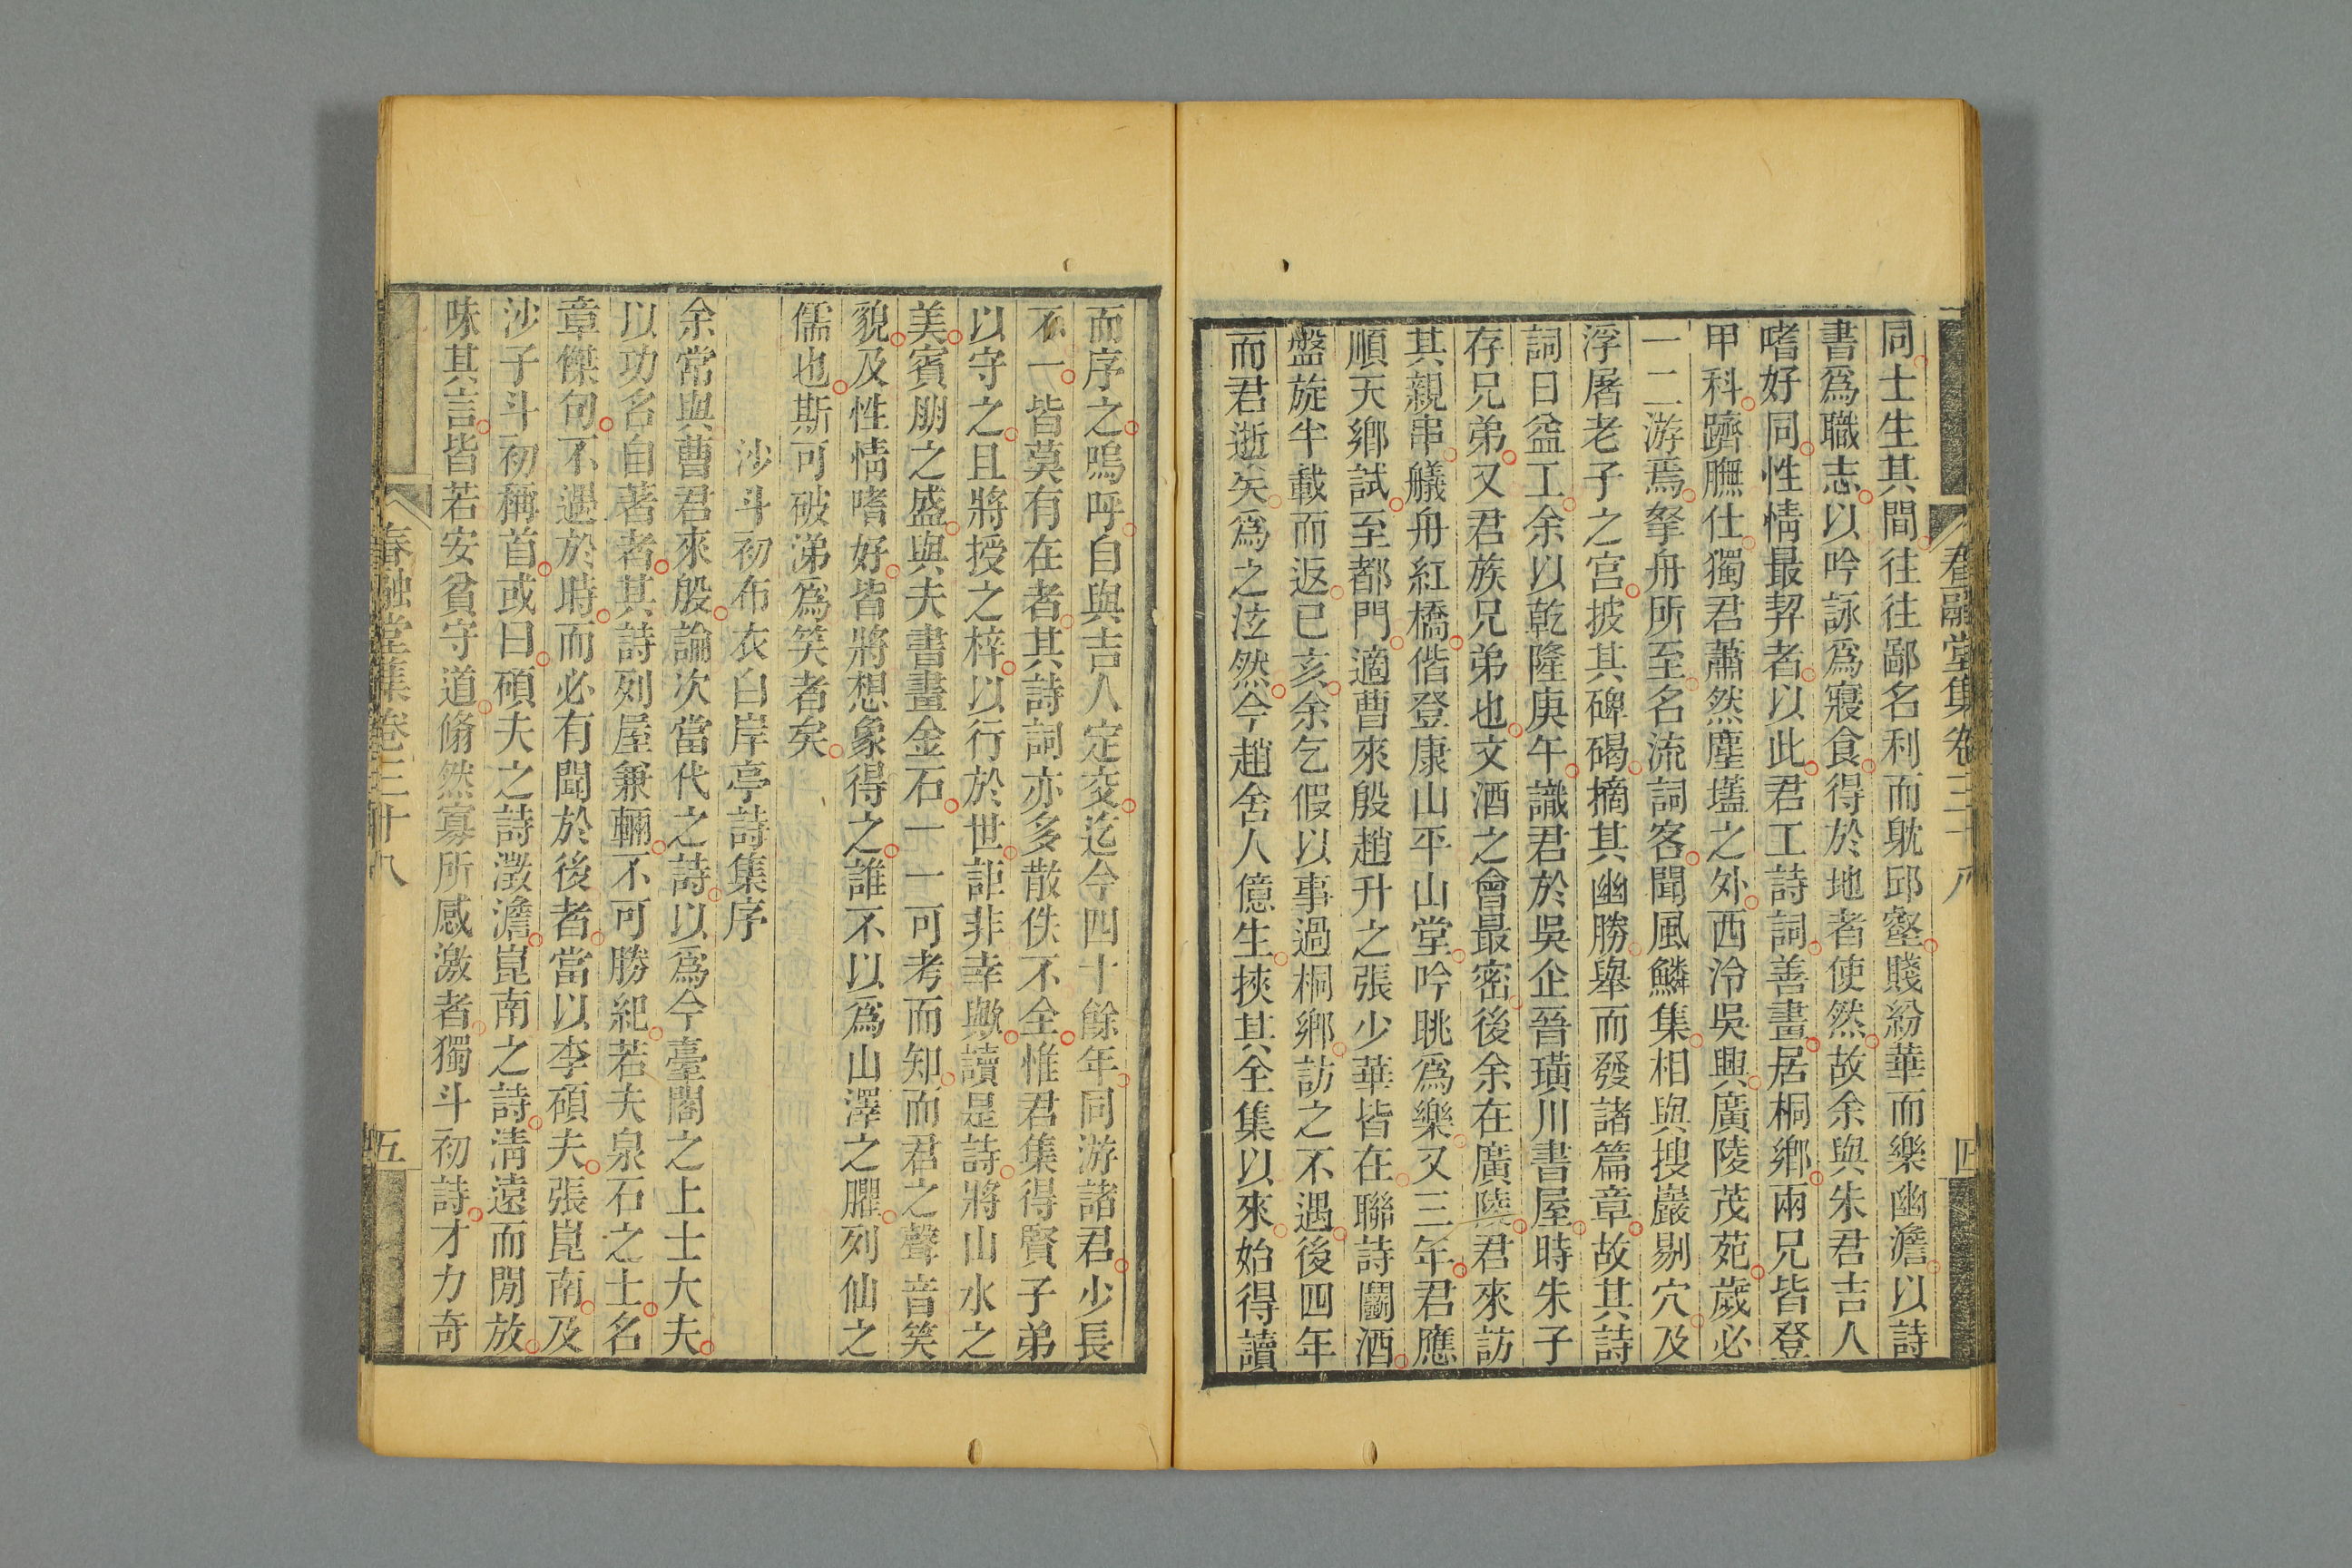 春融堂集卷三十八
四
同士生其間往往鄙名利而躭邱壑賤紛華而樂幽澹以詩
書爲職志以吟詠爲寢食得於地者使然故余與朱君吉人
嗜好同性情最契者以此君工詩詞善畫居桐鄉兩兄皆登
甲科躋膴仕獨君蕭然塵壒之外西泠吳興廣陵茂苑歲必
一二游焉拏舟所至名流詞客聞風鱗集相與搜巖剔穴及
浮屠老子之宫披其碑碣摘其幽勝舉而發諸篇章故其詩
詞日益工余以乾隆庚午識君於吳企晉璜川書屋時朱子
存兄弟又君族兄弟也文酒之會最密後余在廣陵君來訪
其親串艤舟紅橋偕登康山平山堂吟眺爲樂又三年君應
順天鄉試至都門適曹來殷趙升之張少華皆在聯詩鬭酒
盤旋半載而返已亥余乞假以事過桐鄉訪之不遇後四年
而君逝矣爲之泫然今趙舍人億生挾其全集以來始得讀
而序之嗚呼自與吉人定交迄今四十餘年同游諸君少長
不一皆莫有在者其詩詞亦多散佚不全惟君集得賢子弟
以守之且將授之梓以行於世詎非幸歟讀是詩將山水之
美賓朋之盛與夫書畫金石一一可考而知而君之聲音笑
貌及性情嗜好皆將想象得之誰不以爲山澤之臞列仙之
儒也斯可破涕爲笑者矣
沙斗初布衣白岸亭詩集序
余常與曹君來殷論次當代之詩以爲今臺閣之上士大夫
以功名自著者其詩列屋兼輛不可勝紀若夫泉石之士名
章傑句不遇於時而必有聞於後者當以李碩夫張崑南及
沙子斗初稱首或曰碩夫之詩澂澹崑南之詩清遠而閒放
味其言皆若安貧守道翛然寡所感激者獨斗初詩才力奇
春融堂集卷三十八
五